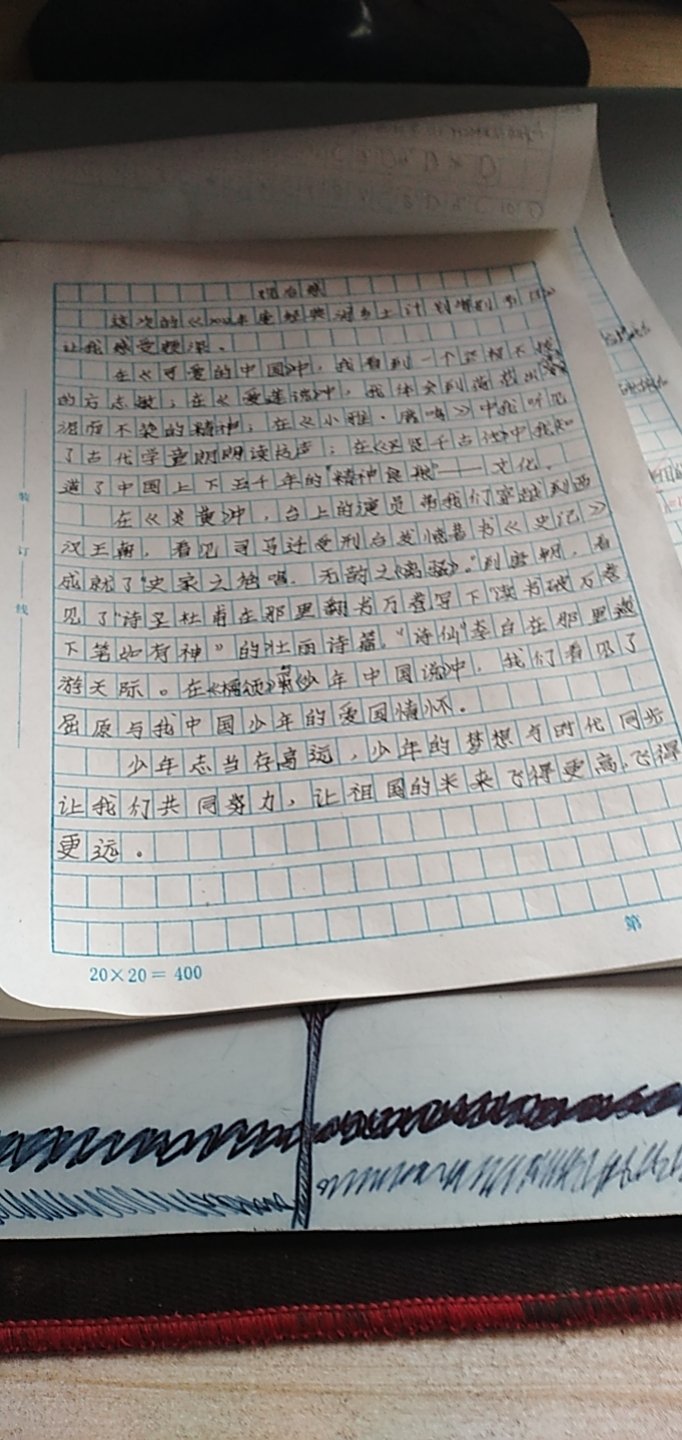 观后感
这次的《
让我感受颇深。
在《可爱的中国》中，我看到一个
的方志敏；在《爱莲说》中，我体会到莲花出
泥而不染的精神；在《小雅·鹿鸣》中我听见
了古代学童朗朗读书声；在《圣贤千古》中我知
道了中国上下五千年的"精神食粮"——文化。
在《炎黄》中，台上的演员带我们穿越到西
汉王朝，看见司马迁受刑后发愤著书《史记》
成就了"史家之绝唱，无韵之《离骚》。"到唐朝，看
见了"诗圣杜甫在那里翻书万卷写下"读书破万卷
下笔如有神"的壮丽诗篇。"诗仙"李白在那里遨
游天际。在《橘颂》和《少年中国说》中，我们看见了
屈原与我中国少年的爱国情怀。
少年志当存高远，少年的梦想与时代同步
让我们共同努力，让祖国的未来飞得更高，飞得
更远。
装
订
线
20×20=400
第